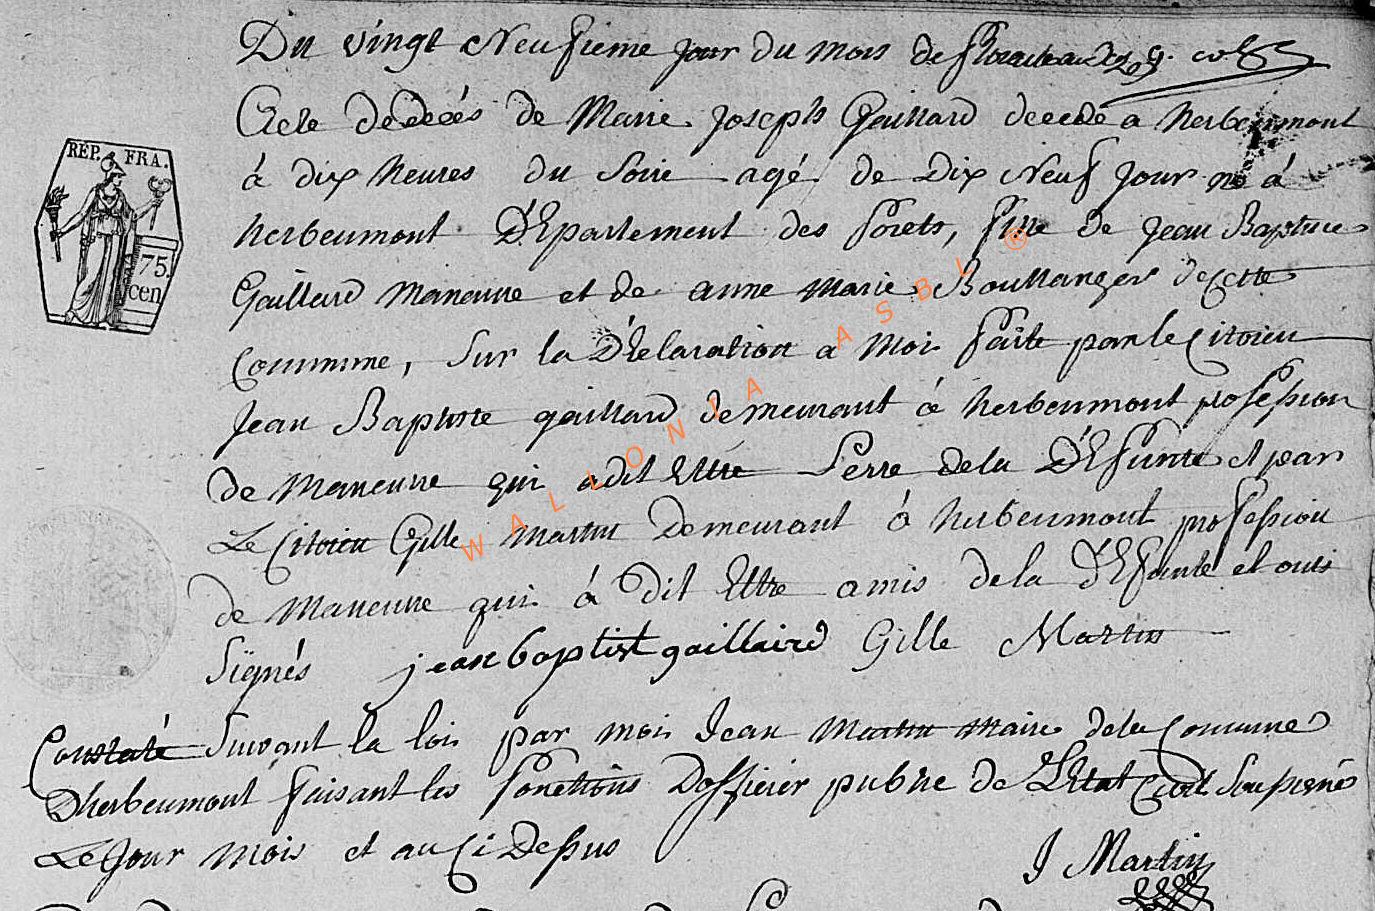 Du vingt Neufieme jour du mois de floreal an
Acte dedeces de Marie joseph Gaillard decede a herbeumont
à dix heures du Soire agé de Dix Neuf Jour né á
herbeumont DEpartement des forets, fille de Jean Baptiste
Gaillard Maneuvre et de anne Marie Boullanger decette
Commune, Sur la Déclaration a Moi faite par le Citoien
Jean Baptiste gaillard demeurant á herbeumont profession
de Maneuvre qui a dit Ettre Perre dela DEfunte et par
Le Citoien Gille Martin Demeurant á herbeumont profession
de Maneuvre qui á Dit Ettre amis dela DEfunte et onts
Signés jean baptist gaillaird Gille Martin
Constaté Suivant la loi par moi Jean Martin Maire dela Commune
Dherbeumont faisant les fonctions Dofficier publie de Letat Civil Soussigné
Le Jour Mois et an Ci Dessus
J Martin
RÉP. FRA.
75.
cen
WALLONIA ASBL ®